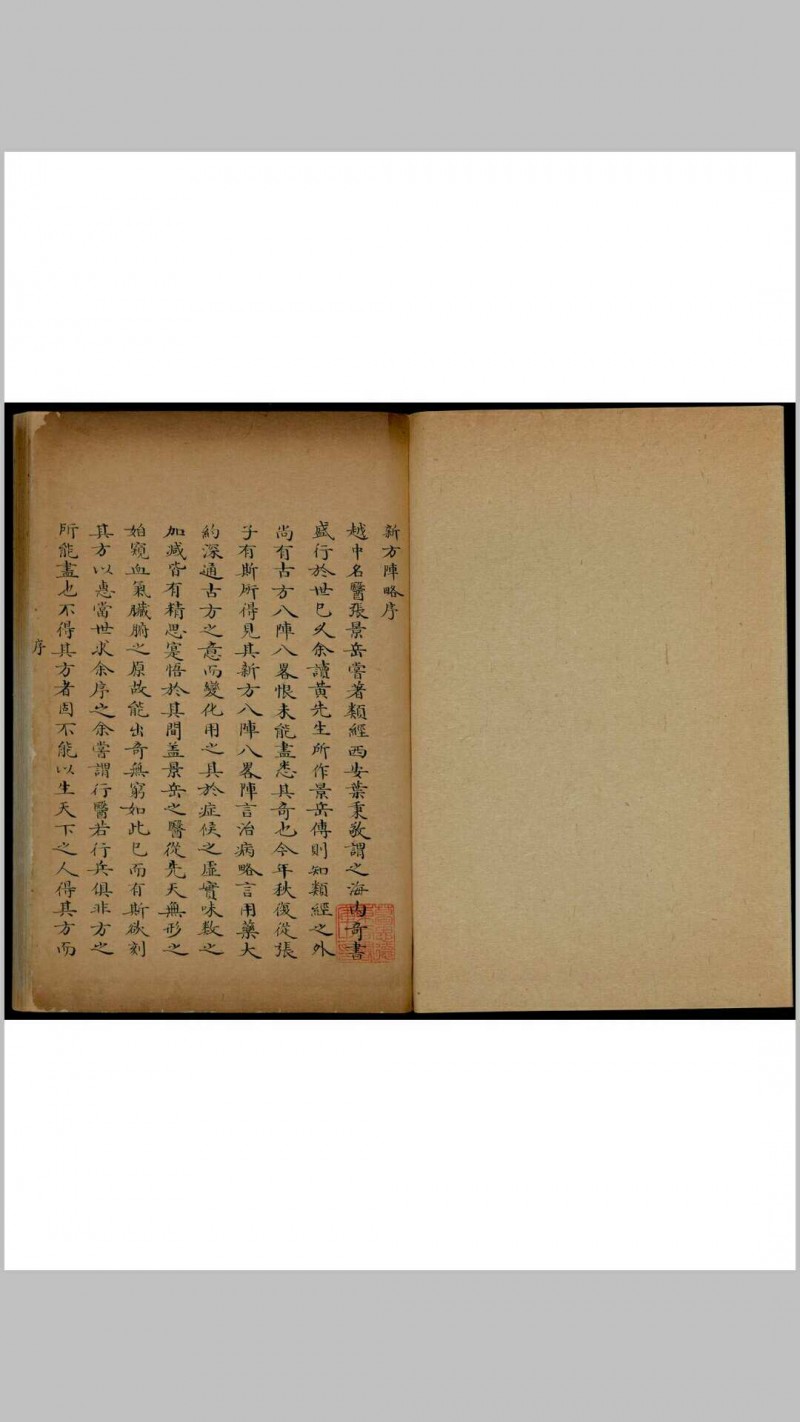 新方陣略序
越中名醫張景岳嘗著類經西安葉秉敬謂之海內奇書
盛行於世已久余讀黄先生所作景岳傳則知類經之外
尚有古方八陣八畧恨未能盡悉其奇也今年秋復從張
子有斯所得見其新方八陣八畧陣言治病略言用藥大
約深通古方之意而變化用之其於症候之虛實味数之
加减皆有精思寔悟於其間盖景岳之醫從先天無形之
始窺血氣臟腑之原故能出奇無窮如此已而有斯欲刻
其方以惠當世求余序之余嘗謂行醫若行兵俱非方之
所能盡也不得其方者固不能以生天下之人得其方而
序